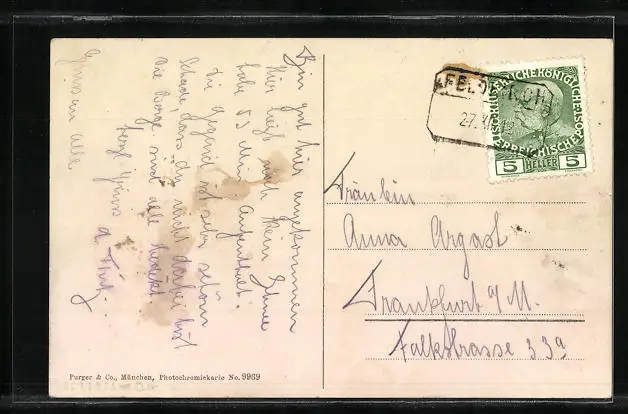 Bin gut hier angekommen
hier liegt noch kein Schnee
habe es mir
die Gegend ist sehr schön
Schade, dass du nicht dabei bist
die Berge sind alle bedeckt
herzl Grüsse
Grüsse an alle
FELDKIRCH
27.XI.12
KAISERLICHE KÖNIGLICHE ÖSTERREICHISCHE
5 HELLER 5
Fräulein
Anna Argast
Frankfurt a/M.
Falkstrasse 33a
Purger & Co., München, Photochromiekarte No. 9969